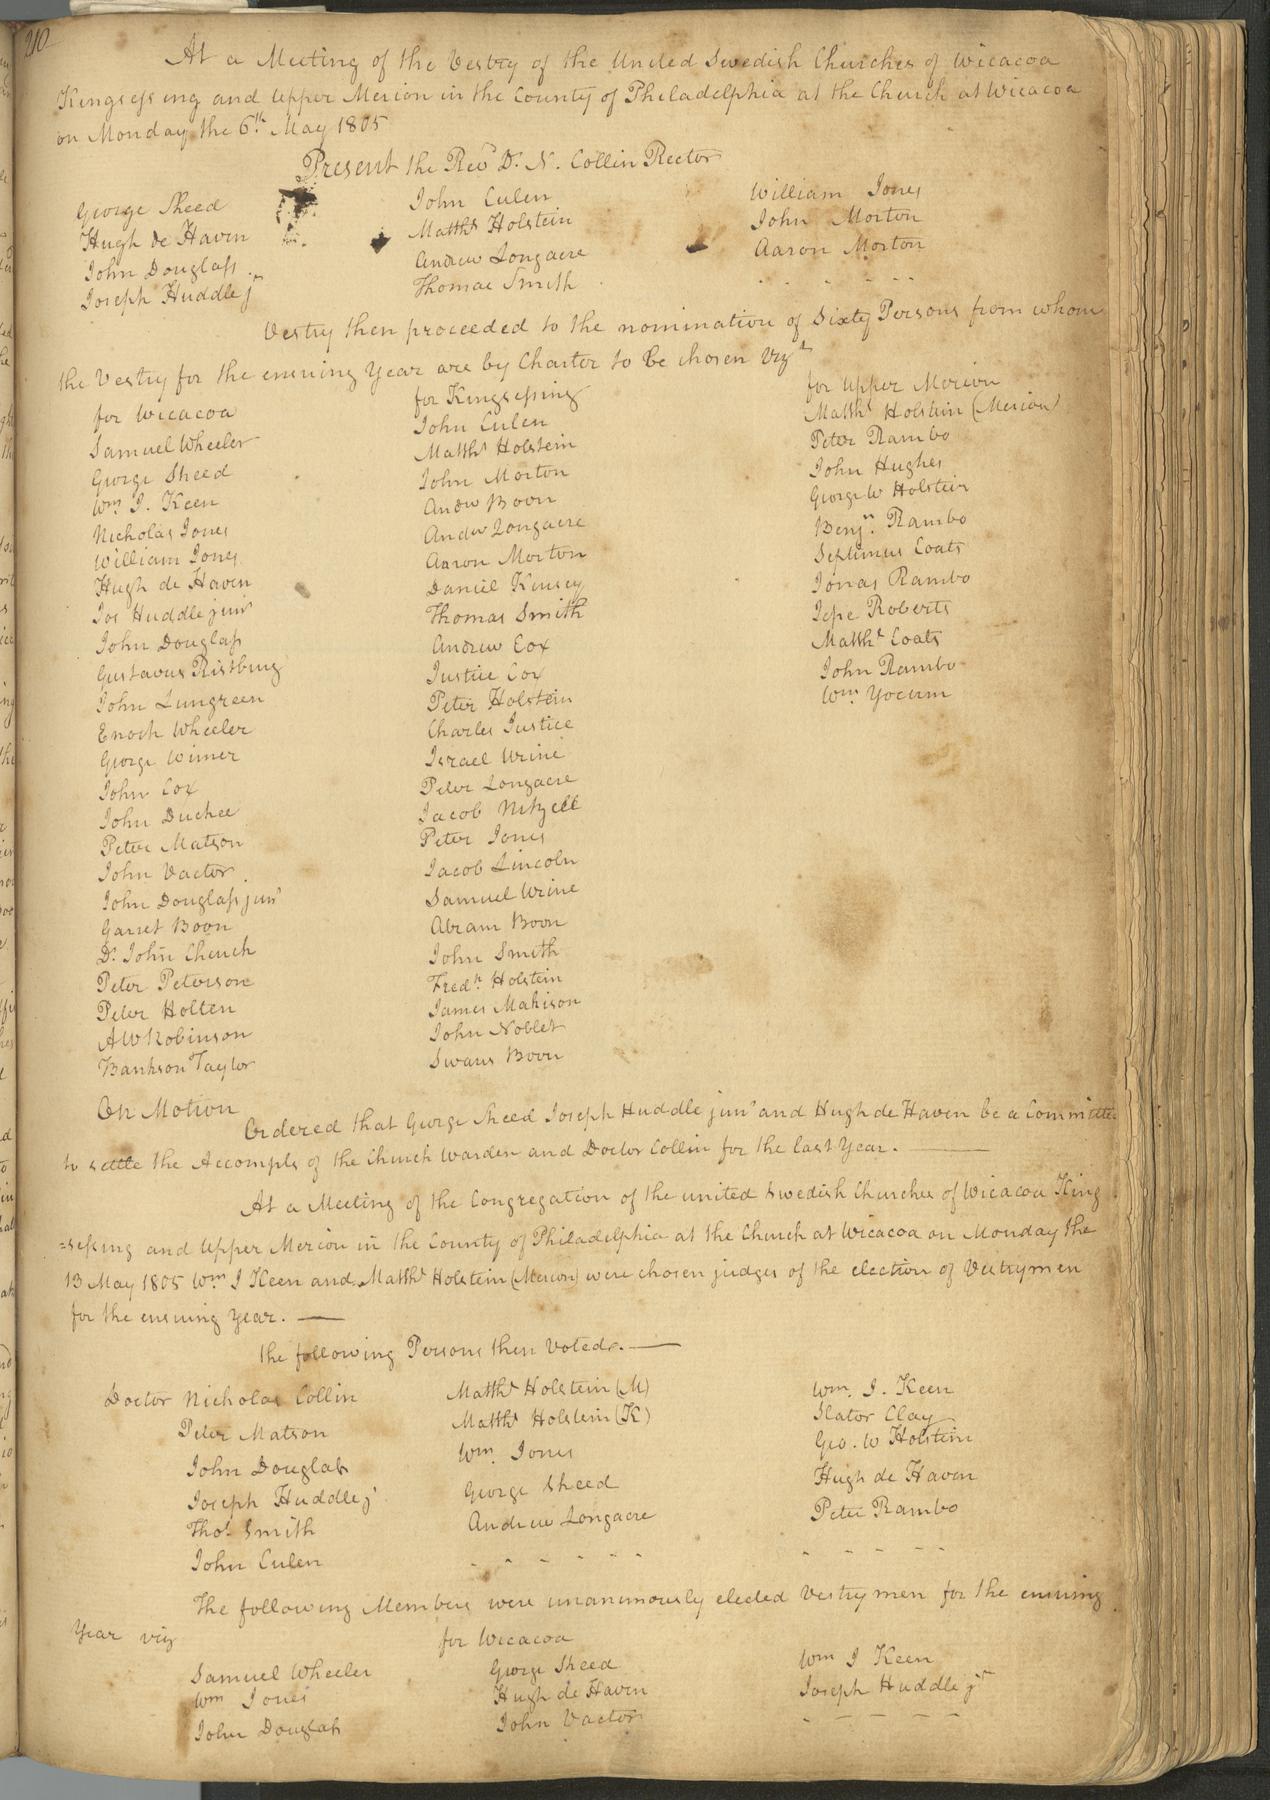 210
At a Meeting of the Vestry of the United Swedish Churches of Wicacoa
Kingsessing and Upper Merion in the County of Philadelphia at the Church at Wicacoa
on Monday the 6th May 1805
Present the Revd Dr N. Collin Rector
George Sheed
Hugh de Haven
John Douglass
Joseph Huddle jr
John Culen
Matths Holstein
Andrew Longacre
Thomas Smith
William Jones
John Morton
Aaron Morton
Vestry then proceeded to the nomination of Sixty Persons from whom
the Vestry for the ensuing Year are by Charter to be chosen Vizt
for Wicacoa
Samuel Wheeler
George Sheed
Wm J. Keen
Nicholas Jones
William Jones
Hugh de Haven
Jos Huddle junr
John Douglass
Gustavus Ristburg
John Lungreen
Enoch Wheeler
George Wimer
John Cox
John Duchee
Peter Matson
John Vactor
John Douglass junr
Garret Boon
Dr John Church
Peter Peterson
Peter Holten
A W Robinson
Bankson Taylor
for Kingsessing
John Culen
Matths Holstein
John Morton
Andw Boon
Andw Longacre
Aaron Morton
Daniel Kinsey
Thomas Smith
Andrew Cox
Justice Cox
Peter Holstein
Charles Justice
Israel Urine
Peter Longacre
Jacob Nitzell
Peter Jones
Jacob Lincoln
Samuel Urine
Abram Boon
John Smith
Fredk Holstein
James Mahison
John Noblet
Swans Boon
for Upper Merion
Matths Holstein (Merion)
Peter Rambo
John Hughes
George W Holstein
Benjn Rambo
Septimus Coats
Jonas Rambo
Jesse Roberts
Matths Coats
John Rambo
Wm Yocum
On Motion
Ordered that George Sheed Joseph Huddle junr and Hugh de Haven be a Committee
to settle the Accompts of the Church Warden and Doctor Collin for the last Year.
At a Meeting of the Congregation of the united Swedish Churches of Wicacoa King
=sessing and Upper Merion in the County of Philadelphia at the Church at Wicacoa on Monday the
13 May 1805 Wm J Keen and Matths Holstein (Merion) were chosen judges of the election of Vestrymen
for the ensuing Year.
The following Persons then Voted.
Doctor Nicholas Collin
Peter Matson
John Douglass
Joseph Huddle jr
Thos Smith
John Culen
Matths Holstein (M)
Matths Holstein (K)
Wm. Jones
George Sheed
Andrew Longacre
Wm. J. Keen
Slator Clay
Geo. W Holstein
Hugh de Haven
Peter Rambo
The following Members were unanimously elected Vestrymen for the ensuing
Year viz
for Wicacoa
Samuel Wheeler
Wm Jones
John Douglass
George Sheed
Hugh de Haven
John Vactor
Wm J Keen
Joseph Huddle jr